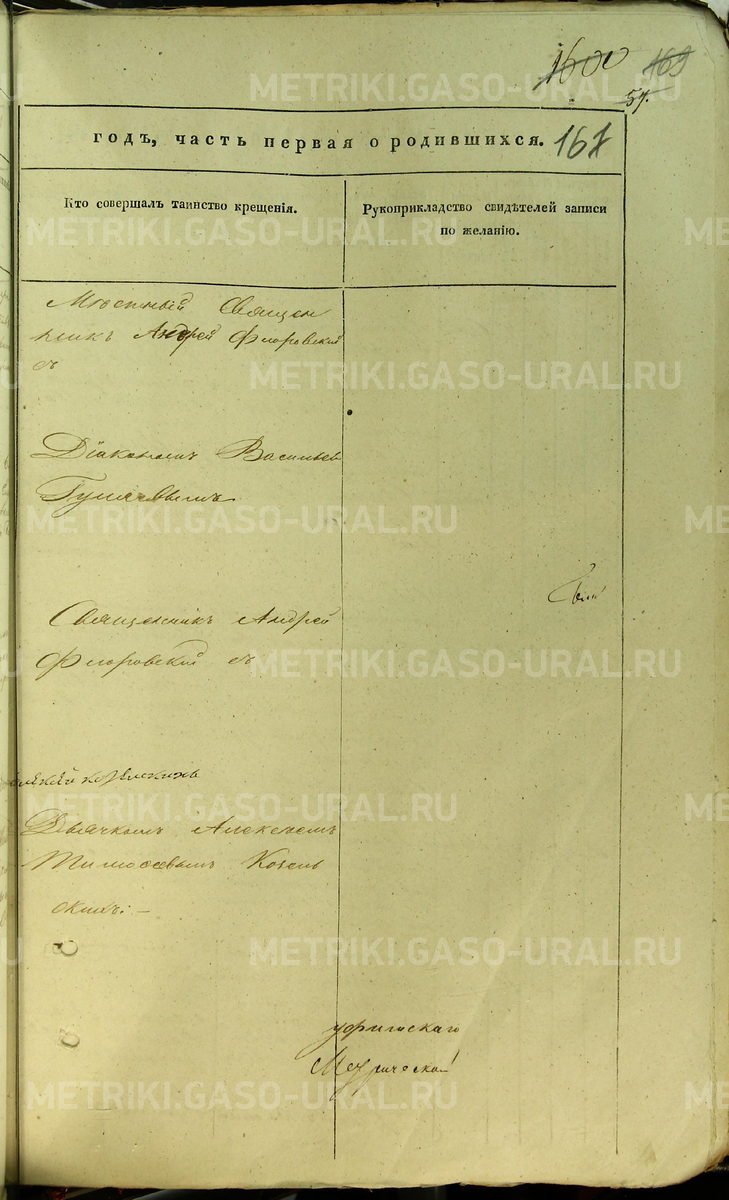 1600 169
57.
годъ, часть первая о родившихся. 167
Кто совершалъ таинство крещенія.
Рукоприкладство свидѣтелей записи
по желанію.
Мѣстный Священ
никъ Андрей Флоровский
съ
Діакономъ Васильев
Священникъ Андрей
Флоровский съ
Дьячкомъ Алексеемъ
Тимофеевымъ Козель
скихъ: —
METRIKI.GASO-URAL.RU